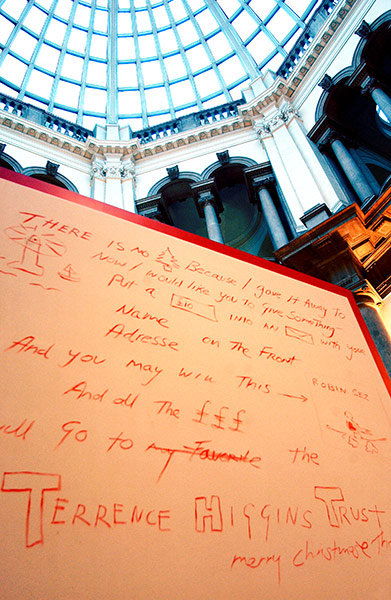 THERE IS NO Because I gave it Away To
Now I would like you to Give Something
Put a $10 into an with your
Name
Adresse on The Front
And you may win This → ROBIN
And all The £££
will Go to my Favorite the
TERRENCE HIGGINS TRUST
merry christmase